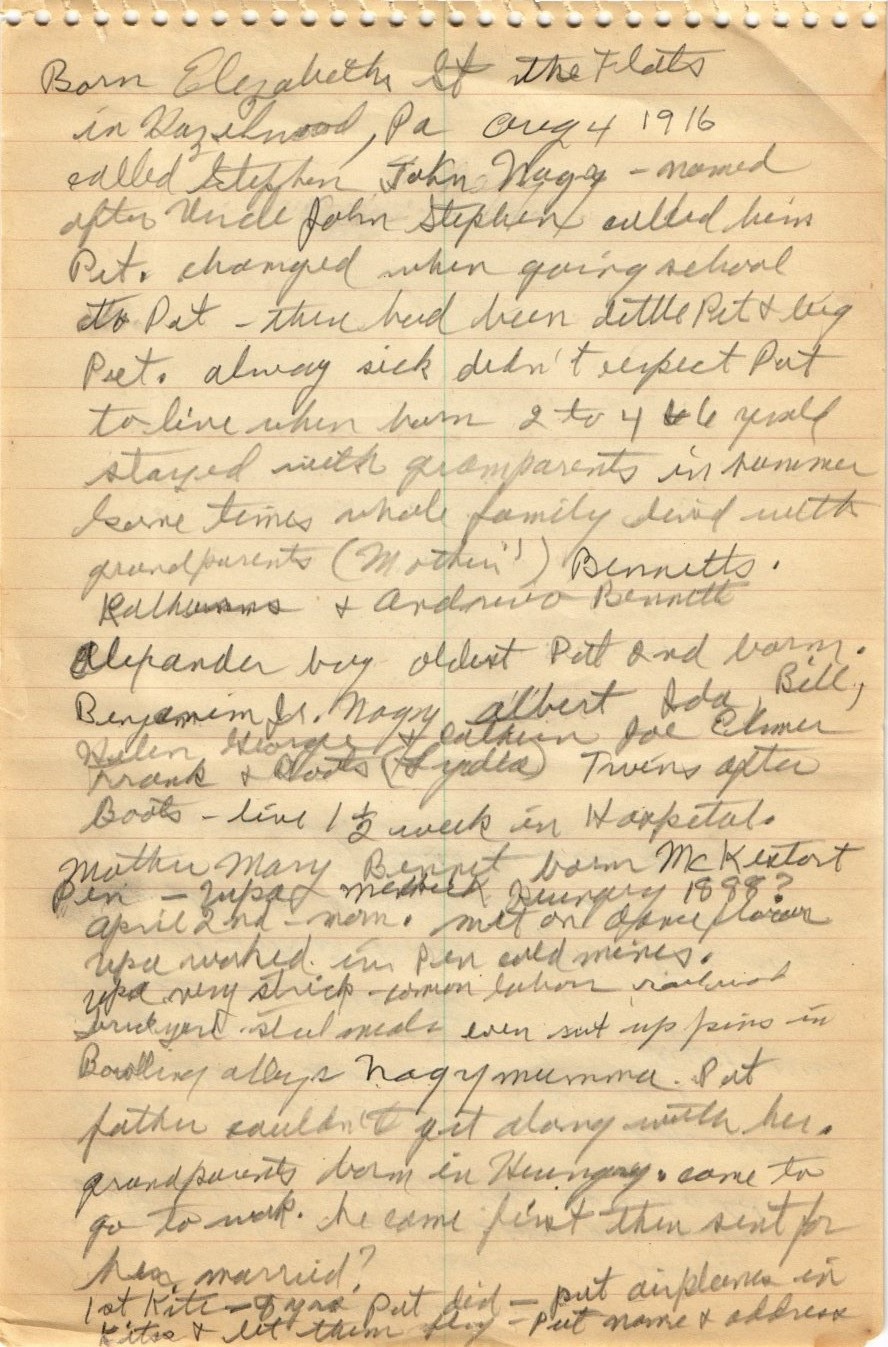 Born Elezabeth St the Flats
in Hazelwood, Pa Aug 4 1916
called Stephen John Nagy - named
after Uncle John Stephen called him
Pet. changed when going school
to Pat - there had been little Pet & big
Peet. alway sick didn't expect Pat
to live when born 2 to 4 6 years
stayed with gramparents in summer
some times whole family lived with
grandparents (Mother's) Bennetts.
& Andrew Bennett
Alexander boy oldest Patt 2nd born.
Benjamin Jr. Nagy albert Ida, Bill,
Helen George & Joe Elmer
Frank & Boots (Lydia) Twins after
Boots - live 1 1/2 week in Hospital.
Mother Mary Bennet born McKestort
Pen - Hungry 1898?
April 2nd - mom. met on dance floor
upa worked in Pen cold mines.
upa very strick - comon labor railroad
brickyard - steel meals even set up pins in
Bowlling alleys Nagymumma. Pat
father couldn't get along with her.
grandparents born in Hungry. came to
go to work. he came first then sent for
her, married?
1st Kite - 8 yrs Pat did - put airplanes in
Kites & let them fly - Put name & address